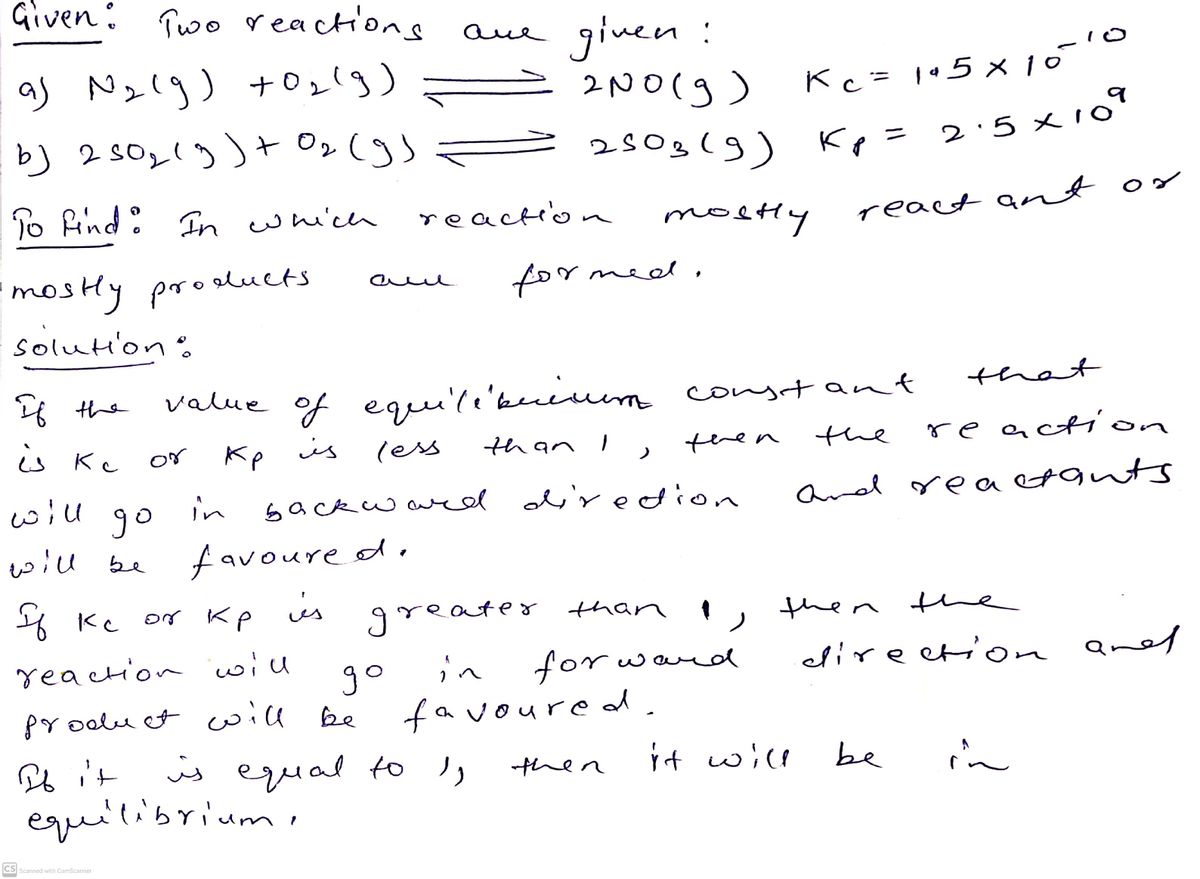 Given: Two reactions are given:
a) N₂(g) + O₂(g) ⇌ 2NO(g) Kc = 1.5 × 10⁻¹⁰
b) 2SO₂(g) + O₂(g) ⇌ 2SO₃(g) Kp = 2.5 × 10⁹
To find: In which reaction mostly reactant or
mostly products are formed.
Solution:
If the value of equilibrium constant that
is Kc or Kp is less than 1, then the reaction
will go in backward direction and reactants
will be favoured.
If Kc or Kp is greater than 1, then the
reaction will go in forward direction and
product will be favoured.
If it is equal to 1, then it will be in
equilibrium.
CS Scanned with CamScanner